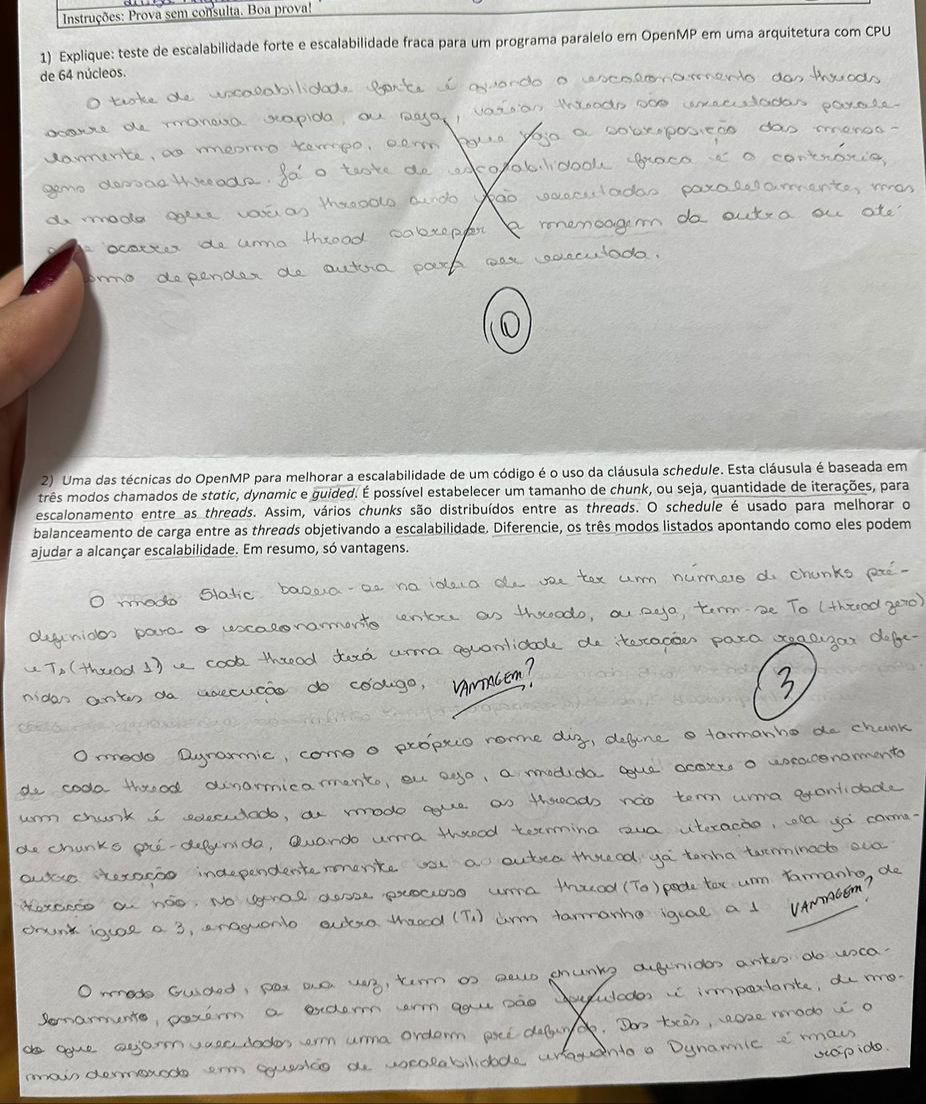 Instruções: Prova sem consulta. Boa prova!
1) Explique: teste de escalabilidade forte e escalabilidade fraca para um programa paralelo em OpenMP em uma arquitetura com CPU
de 64 núcleos.
O teste de escalabilidade forte é quando o escalonamento das threads
ocorre de maneira rapida, ou seja, varias threads são executadas parale-
lamente, ao mesmo tempo, sem que haja a sobreposição das mensa-
gens dessas threads. Já o teste de escalabilidade fraca é o contrário,
de modo que varias threads ainda são executadas paralelamente, mas
ocorrer de uma thread sobrepor a mensagem da outra ou até
mesmo depender de outra para ser executada.
0
2) Uma das técnicas do OpenMP para melhorar a escalabilidade de um código é o uso da cláusula schedule. Esta cláusula é baseada em
três modos chamados de static, dynamic e guided. É possível estabelecer um tamanho de chunk, ou seja, quantidade de iterações, para
escalonamento entre as threads. Assim, vários chunks são distribuídos entre as threads. O schedule é usado para melhorar o
balanceamento de carga entre as threads objetivando a escalabilidade. Diferencie, os três modos listados apontando como eles podem
ajudar a alcançar escalabilidade. Em resumo, só vantagens.
O modo Static baseia-se na ideia de se ter um número de chunks pré-
definidos para o escalonamento entre as threads, ou seja, tem-se To (thread zero)
e T1 (thread 1) e cada thread terá uma quantidade de iterações para realizar defe-
nidas antes da execução do código, VANTAGEM?
3
O modo Dynamic, como o próprio nome diz, define o tamanho de chunk
de cada thread dinamicamente, ou seja, a medida que ocorre o escalonamento
um chunk é executado, de modo que as threads não tem uma quantidade
de chunks pré-definida, Quando uma thread termina sua iteração, ela já come-
outra iteração independentemente se a outra thread já tenha terminado sua
iteração ou não, No final desse processo uma thread (To) pode ter um tamanho de
chunk igual a 3, enquanto outra thread (T1) um tamanho igual a 1 VANTAGEM?
O modo Guided, por sua vez, tem os seus chunks definidos antes do esca-
lonamento, porem a ordem em que são executados é importante, de mo-
do que sejam executados em uma ordem pré definida. Dos três, esse modo é o
mais demorado em questão de escalabilidade enquanto o Dynamic é mais
rápido.